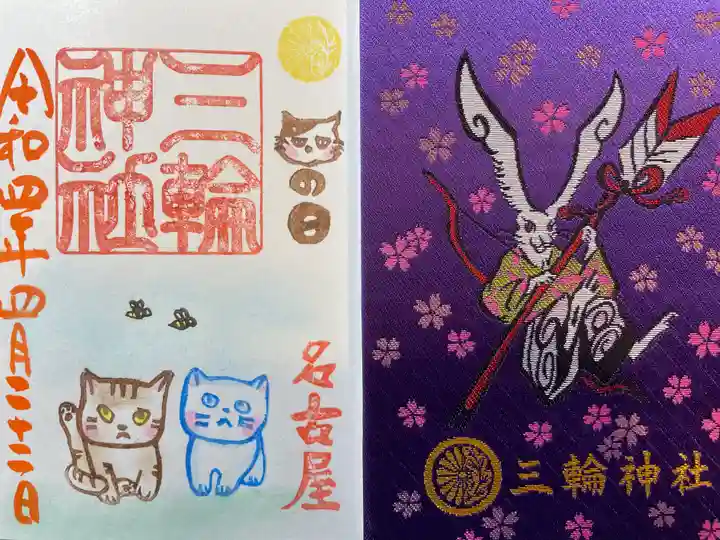 の日
三輪
神社
令和四年四月二十二日
名古屋
三輪神社